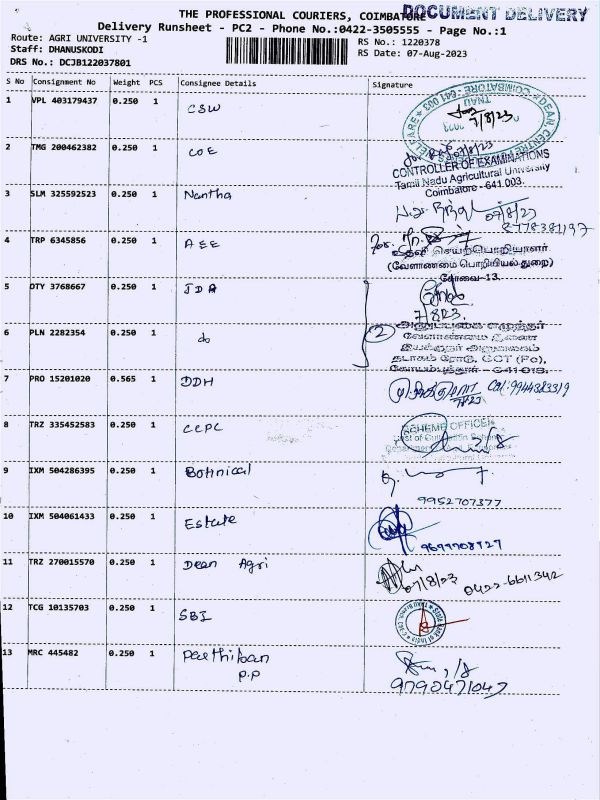 THE PROFESSIONAL COURIERS, COIMBATORE
DOCUMENT DELIVERY
Delivery Runsheet - PC2 - Phone No.:0422-3505555 - Page No.:1
Route: AGRI UNIVERSITY -1
RS No.: 1220378
Staff: DHANUSKODI
RS Date: 07-Aug-2023
DRS No.: DCJB122037801
S No Consignment No Weight PCS Consignee Details Signature
1 VPL 403179437 0.250 1 CSW
7/8/23
2 TMG 200462382 0.250 1 COE
CONTROLLER OF EXAMINATIONS
Tamil Nadu Agricultural University
Coimbatore - 641 003.
3 SLM 325592523 0.250 1 Nantha
07/8/23
8778381197
4 TRP 6345856 0.250 1 AEE
for.
உதவி செயற்பொறியாளர்
(வேளாண்மை பொறியியல் துறை)
கோவை-13.
5 OTY 3768667 0.250 1 JDA
7/8/23
6 PLN 2282354 0.250 1 do
2
வேளாண்மை இணை
இயக்குநர் அலுவலகம்
தடாகம் ரோடு, GCT (Po),
கோயம்புத்தூர் - 641 013.
7 PRO 15201020 0.565 1 DDH
Cel: 9944383319
8 TRZ 335452583 0.250 1 CCPC
SCHEME OFFICER
9 IXM 504286395 0.250 1 Botnical
9952707377
10 IXM 504061433 0.250 1 Estate
9699708727
11 TRZ 270015570 0.250 1 Dean Agri
07/8/23 0422-6611342
12 TCG 10135703 0.250 1 SBI
13 MRC 445482 0.250 1 Parthiban
P.P
9790471047